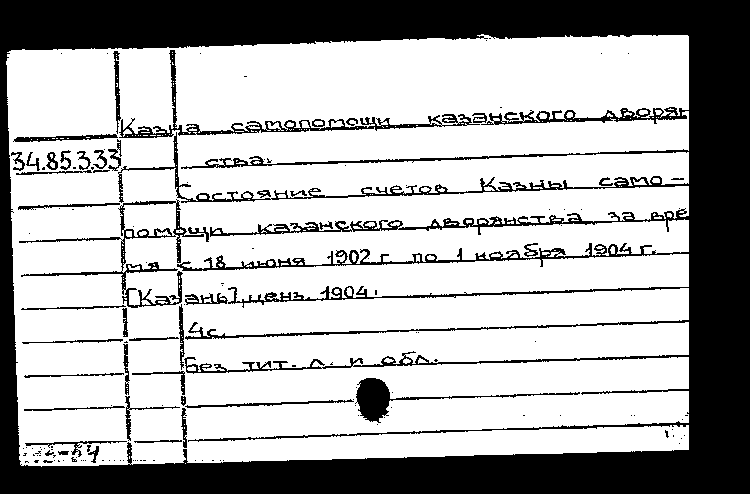 Казна самопомощи казанского дворян
34.85.3.33. ства.
Состояние счетов Казны само-
помощи казанского дворянства за вре
мя с 18 июня 1902 г по 1 ноября 1904 г.
[Казань], ценз. 1904.
4 с.
Без тит. л. и обл.